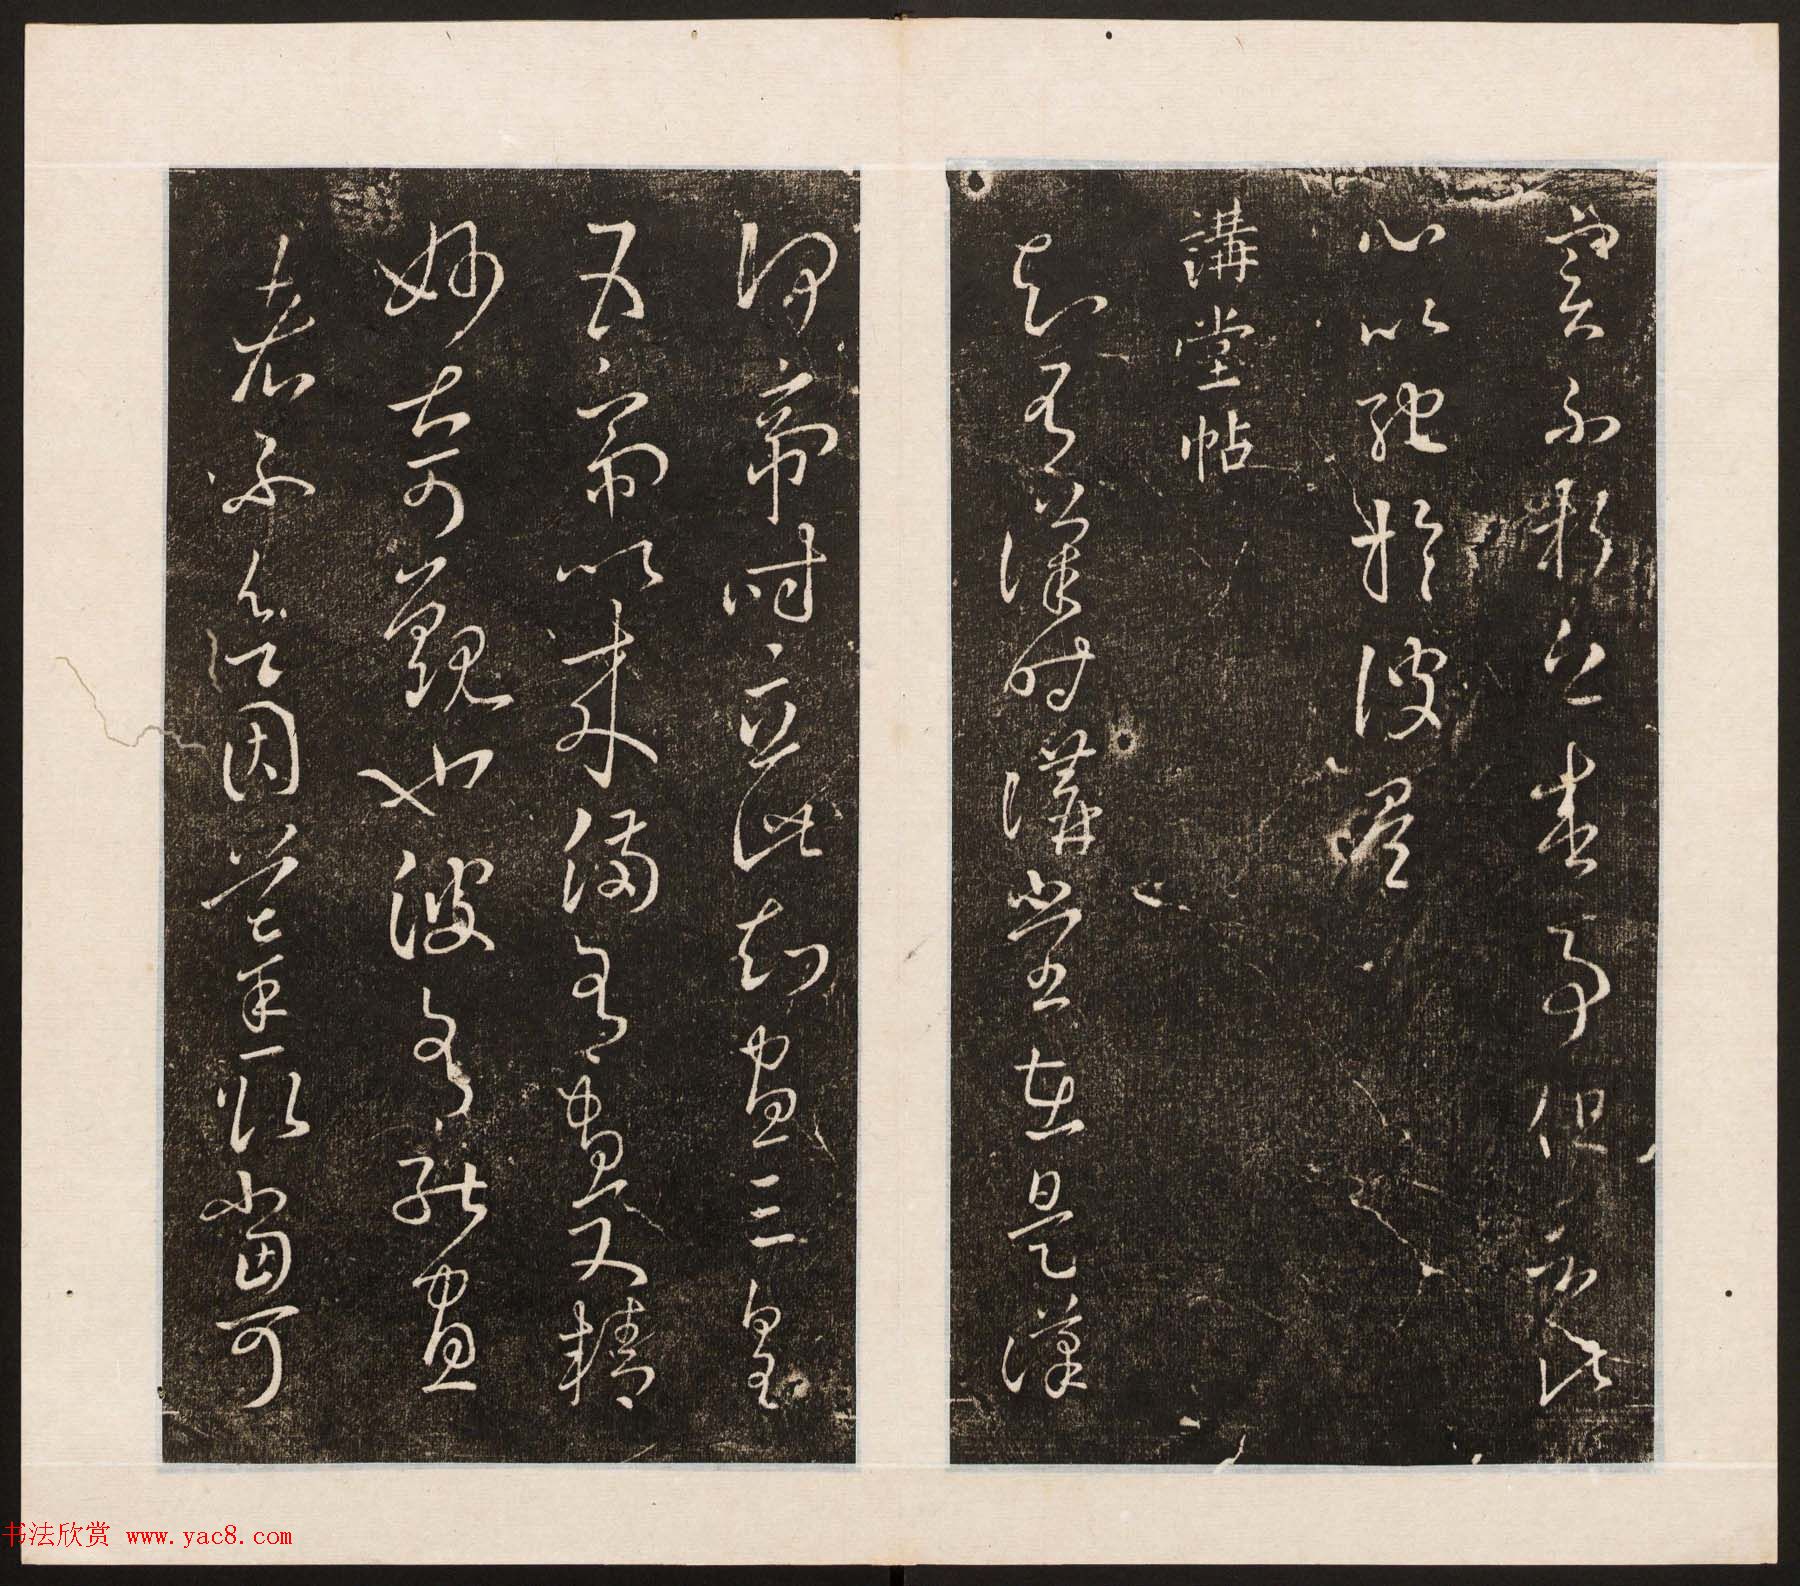 實不虧也生事但分此
心以馳於彼耳
講堂帖
知有漢時講堂在是漢
何帝時立此知畫三皇
五帝以來備有畫又精
妙甚可觀也彼有能畫
者不欲因摹取當可
书法欣赏 www.yac8.com